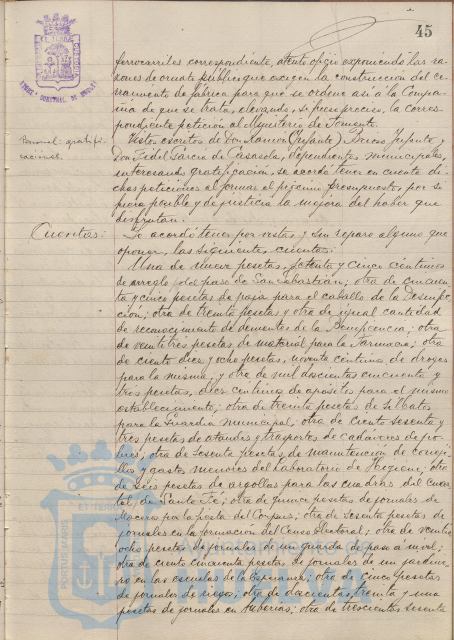 45
ferrocarriles correspondiente, atento oficio exponiendo las ra-
zones de ornato público que exigen la construcción del ce-
rramiento de fábrica para que se ordene así a la Compa-
ñia de que se trata, elevando, si fuese preciso, la corres-
pondiente petición al Ministerio de Fomento.
Personal: gratifi-
caciones.
Vistos escritos de Don Ramón (Infante) Infante y
Don Fidel García de Casasola, dependientes municipales,
interesando gratificación, se acordó tener en cuenta di-
chas peticiones al formar el próximo presupuesto, por si
fuera posible y de justicia la mejora del haber que
disfrutan.
Cuentas:
Se acordó tener por vistas y sin reparo alguno que
oponer, las siguientes cuentas:
Una de nueve pesetas, setenta y cinco céntimos
de arreglo del paso de San Sebastián; otra de cincuen-
ta y cinco pesetas de paja para el caballo de la Desinfec-
ción; otra de treinta pesetas y otra de igual cantidad
de reconocimiento de dementes de la Beneficencia; otra
de veintitrés pesetas de material para la Farmacia; otra
de ciento diez y ocho pesetas, noventa céntimos de drogas
para la misma, y otra de mil doscientas cincuenta y
tres pesetas, diez céntimos de apósitos para el mismo
establecimiento; otra de treinta pesetas de silbatos
para la Guardia municipal; otra de ciento sesenta y
tres pesetas de ataudes y trasportes de cadáveres de po-
bres; otra de sesenta pesetas, de manutención de coneji-
llos y gastos menores del Laboratorio de Higiene; otra
de seis pesetas de argollas para las cuadras del cuar-
tel de Santa Fé; otra de quince pesetas de jornales de
Moceros por la fiesta del Corpus; otra de sesenta pesetas de
jornales en la formación del Censo electoral; otra de veinti-
ocho pesetas de jornales de un guarda de paso a nivel;
otra de ciento cincuenta pesetas de jornales de un jardine-
ro en las escuelas de la Esperanza; otra de cinco pesetas
de jornales de riegos; otra de doscientas treinta y una
pesetas de jornales en tuberías; otra de trescientas sesenta